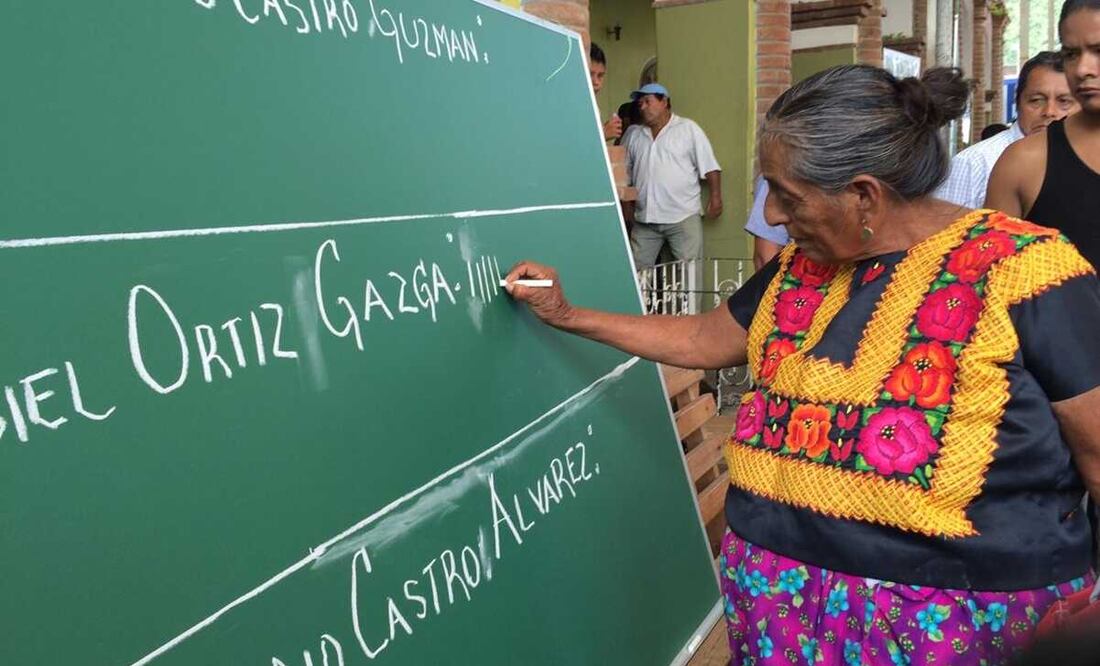 CASTRO GUZMAN:
IEL ORTIZ GAZGA: IIIII
CASTRO ALVAREZ: